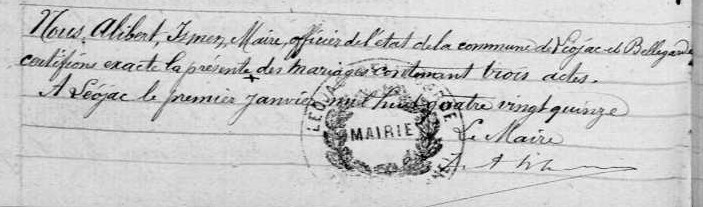 Nous, Alibert, Ismen, Maire, officier de l'état de la commune de Léojac et Bellegarde
certifions exacte la présente + des mariages contenant trois actes.
A Léojac le premier janvier mil huit quatre vingt quinze
Le Maire
MAIRIE